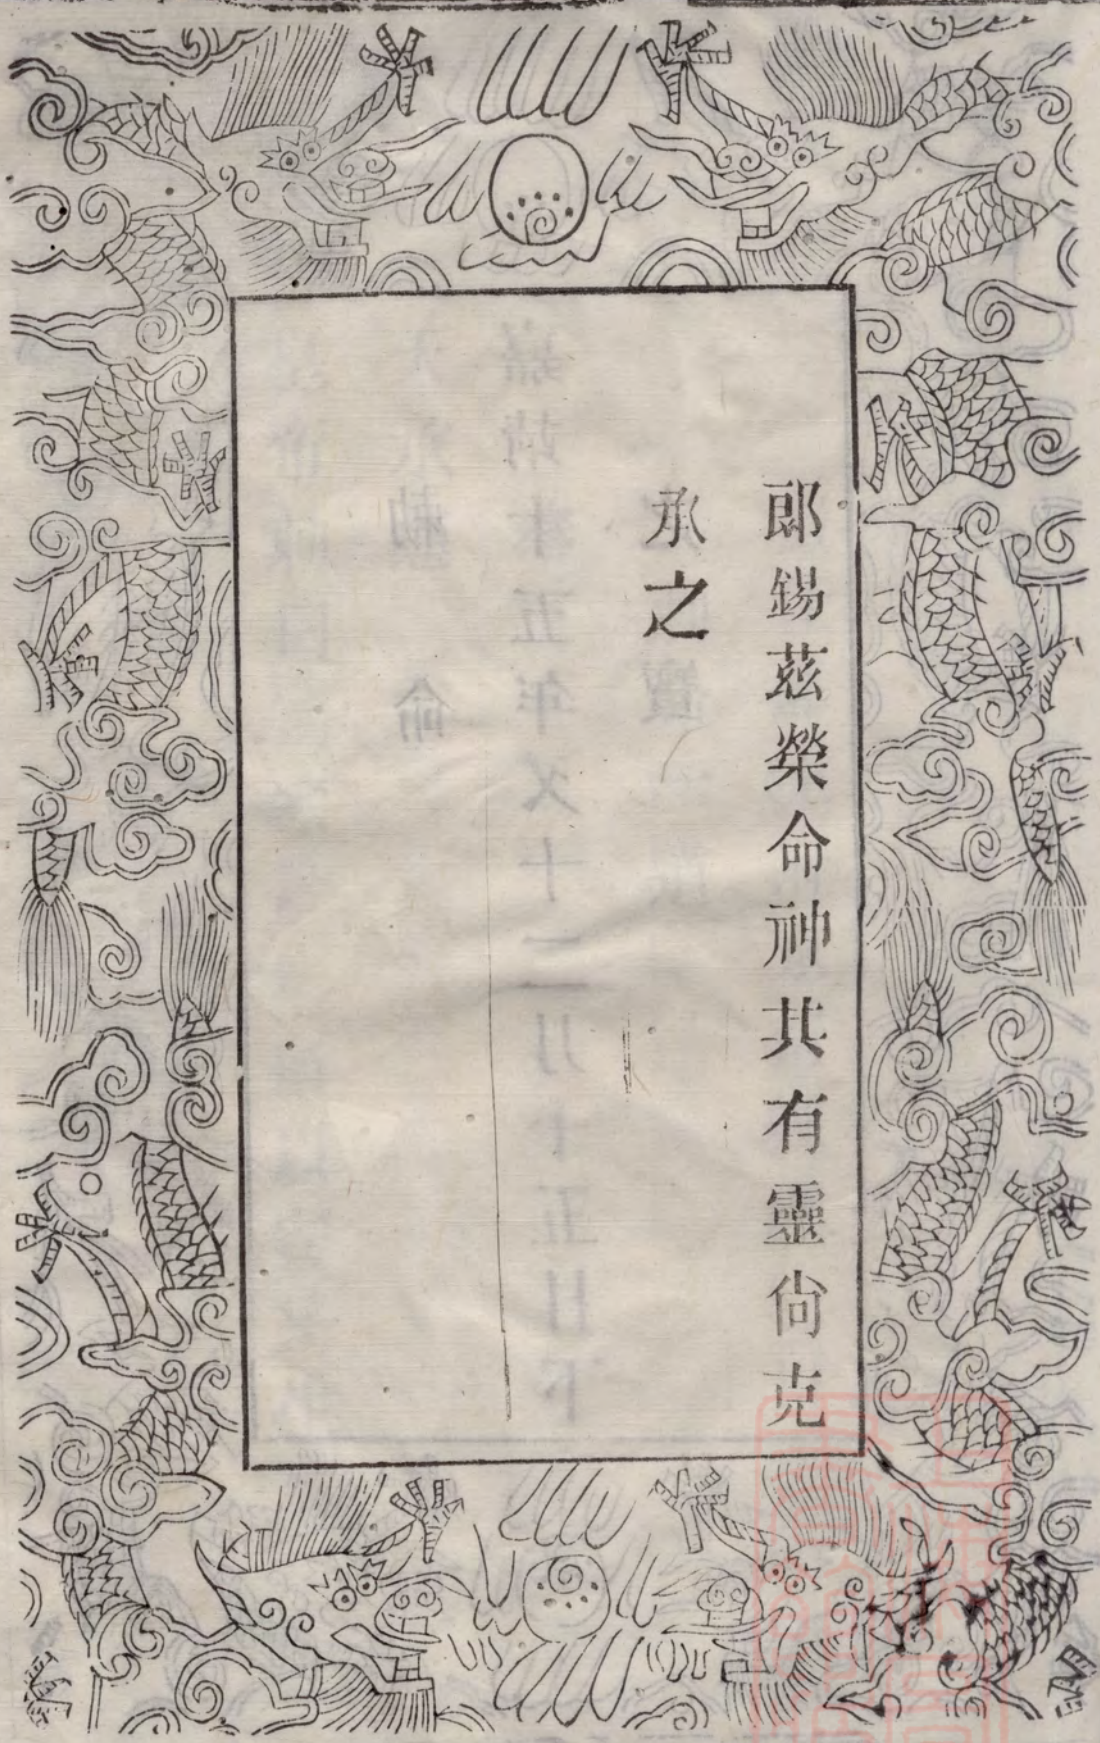 郎錫茲榮命神其有靈尙克
承之